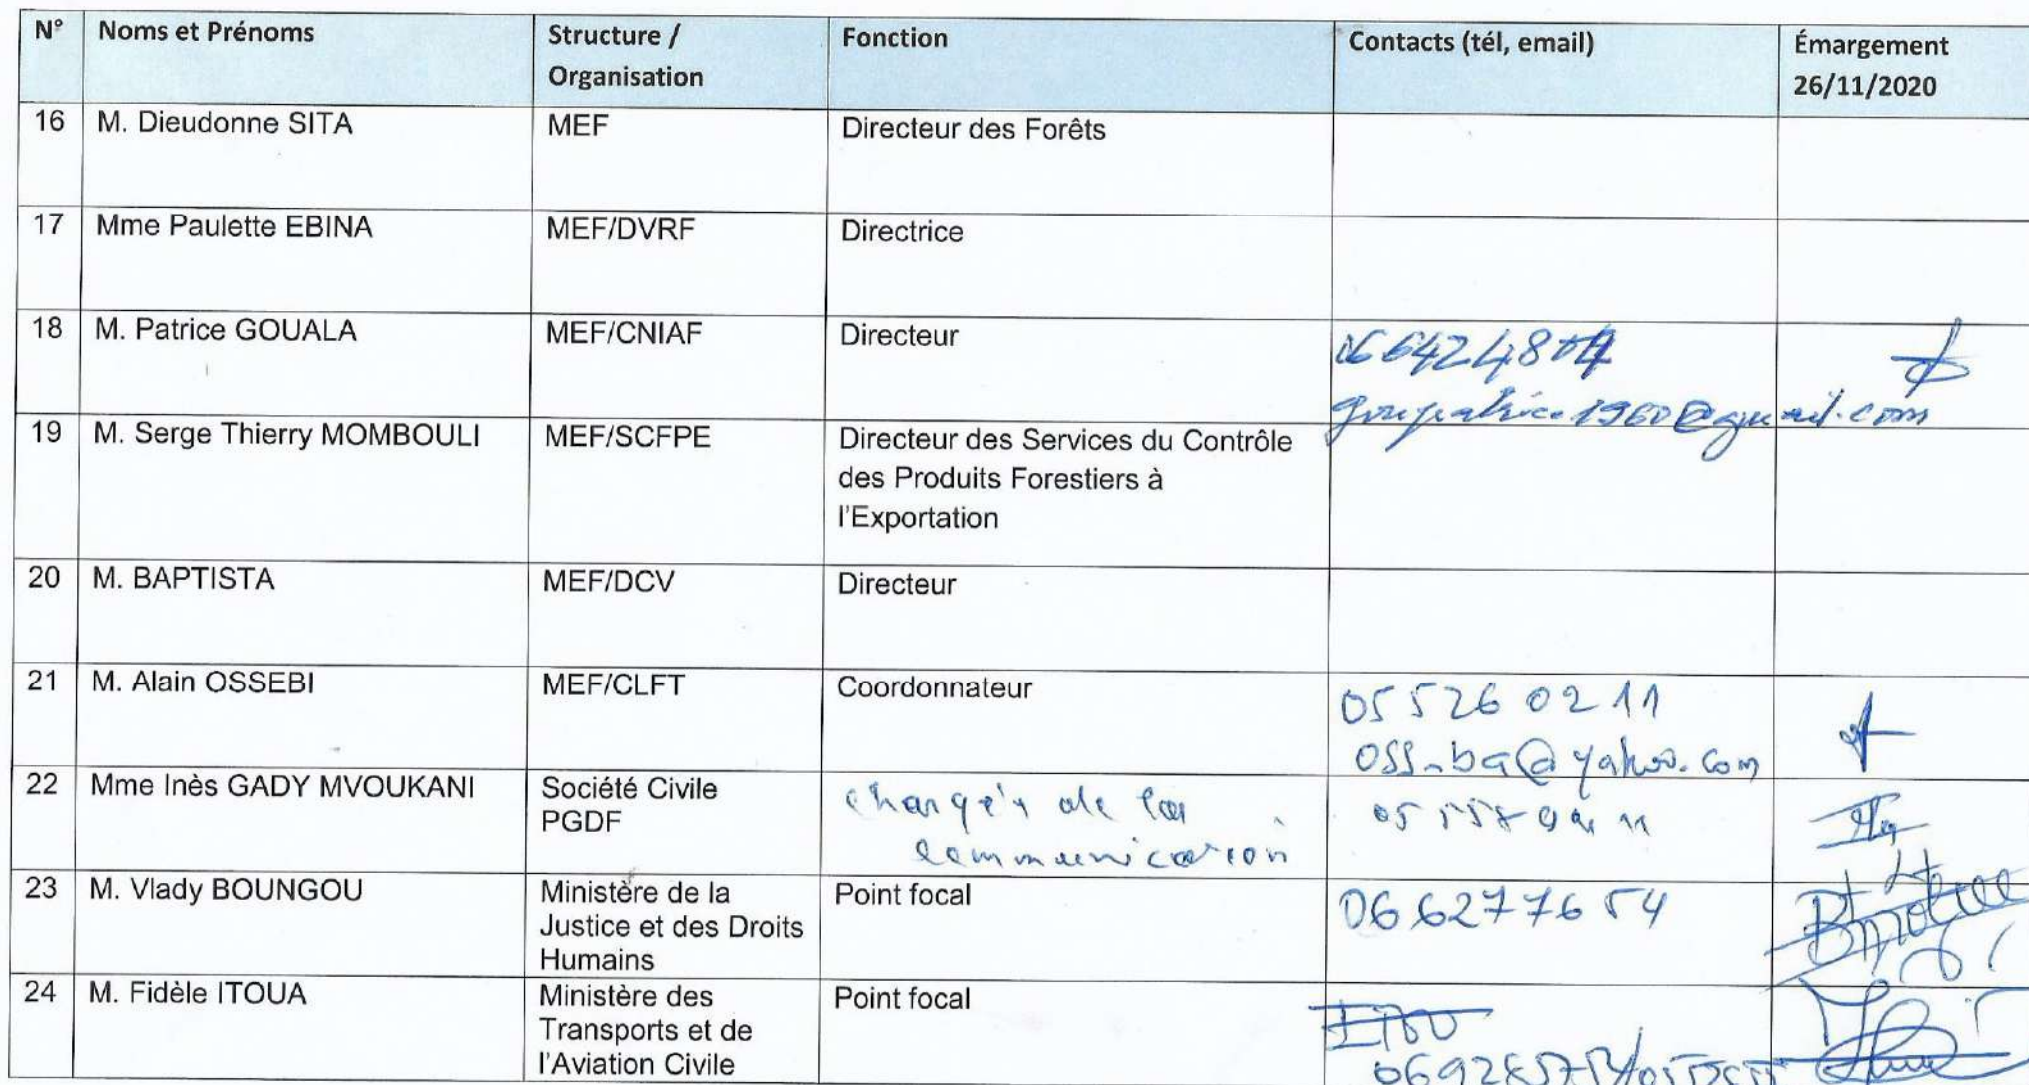 N° Noms et Prénoms Structure / Organisation Fonction Contacts (tél, email) Émargement 26/11/2020
16 M. Dieudonne SITA MEF Directeur des Forêts
17 Mme Paulette EBINA MEF/DVRF Directrice
18 M. Patrice GOUALA MEF/CNIAF Directeur
19 M. Serge Thierry MOMBOULI MEF/SCFPE Directeur des Services du Contrôle
des Produits Forestiers à
l'Exportation
20 M. BAPTISTA MEF/DCV Directeur
21 M. Alain OSSEBI MEF/CLFT Coordonnateur 05 526 02 11
22 Mme Inès GADY MVOUKANI Société Civile
PGDF
de la
communication
23 M. Vlady BOUNGOU Ministère de la
Justice et des Droits
Humains
Point focal 06 627 76 54
24 M. Fidèle ITOUA Ministère des
Transports et de
l'Aviation Civile
Point focal